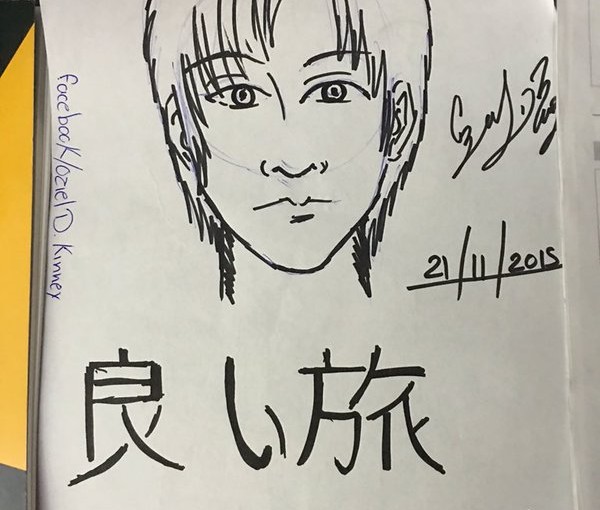 facebook/oziel D. Kinney
21/11/2015
良い旅